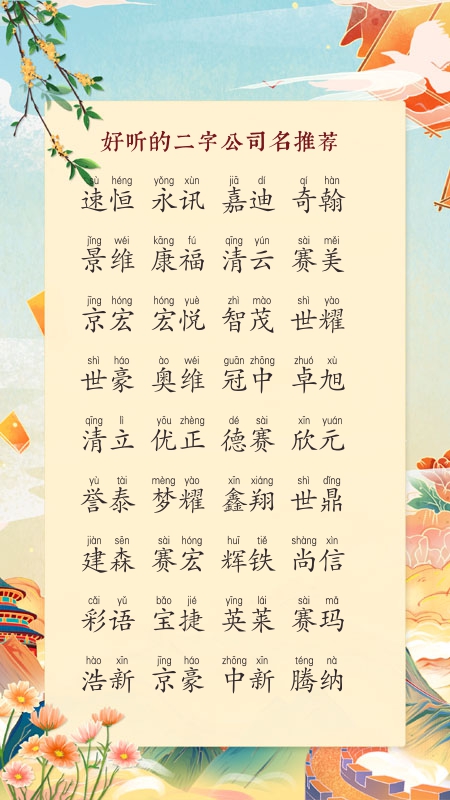 好听的二字公司名推荐
sù héng yǒng xùn jiā dí qí hàn
速恒 永讯 嘉迪 奇翰
jǐng wéi kāng fú qīng yún sài měi
景维 康福 清云 赛美
jīng hóng hóng yuè zhì mào shì yào
京宏 宏悦 智茂 世耀
shì háo ào wéi guān zhōng zhuó xù
世豪 奥维 冠中 卓旭
qīng lì yōu zhèng dé sài xīn yuán
清立 优正 德赛 欣元
yù tài mèng yào xīn xiáng shì dǐng
誉泰 梦耀 鑫翔 世鼎
jiàn sēn sài hóng huī tiě shàng xìn
建森 赛宏 辉铁 尚信
cǎi yǔ bǎo jié yīng lái sài mǎ
彩语 宝捷 英莱 赛玛
hào xīn jīng háo zhōng xīn téng nà
浩新 京豪 中新 腾纳